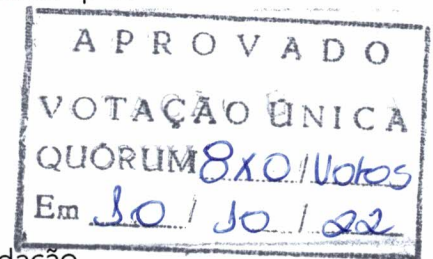 APROVADO
VOTAÇÃO ÚNICA
QUÓRUM 8x0/Votos
Em 10/10/22
dação